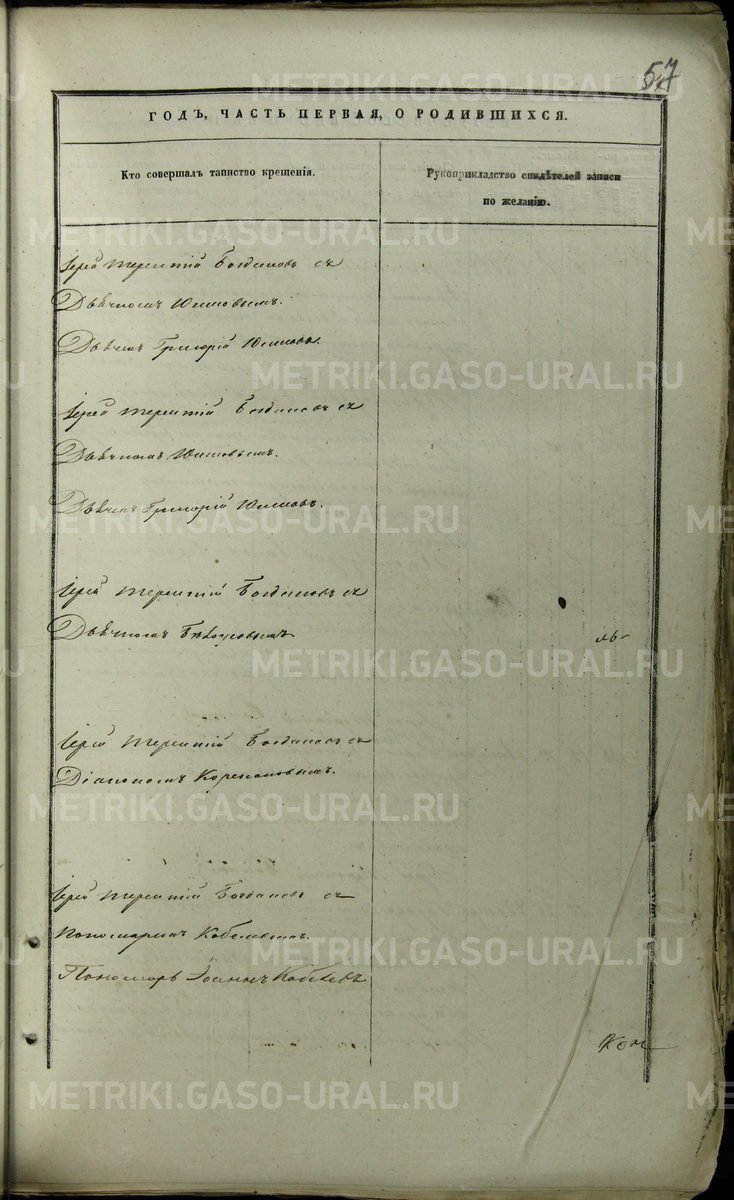 57
ГОДЪ, ЧАСТЬ ПЕРВАЯ, О РОДИВШИХСЯ.
Кто совершалъ таинство крещенія.
Рукоприкладство свидѣтелей записи
по желанію.
Іерей Терентій Богдановъ съ
Дьячкомъ Юшковымъ.
Дьячекъ Григорій Юшковъ.
Іерей Терентій Богдановъ съ
Дьячкомъ Юшковымъ.
Дьячекъ Григорій Юшковъ.
Іерей Терентій Богдановъ съ
Дьячкомъ
Іерей Терентій Богдановъ съ
Діакономъ
Іерей Терентій Богдановъ съ
Пономаремъ
Пономарь Іоаннъ
METRIKI.GASO-URAL.RU